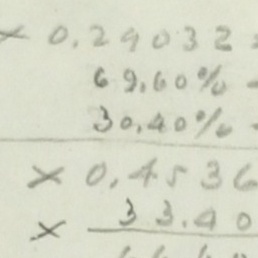 × 0.29032
69.60%
30.40%
× 0.4536
× 33.40